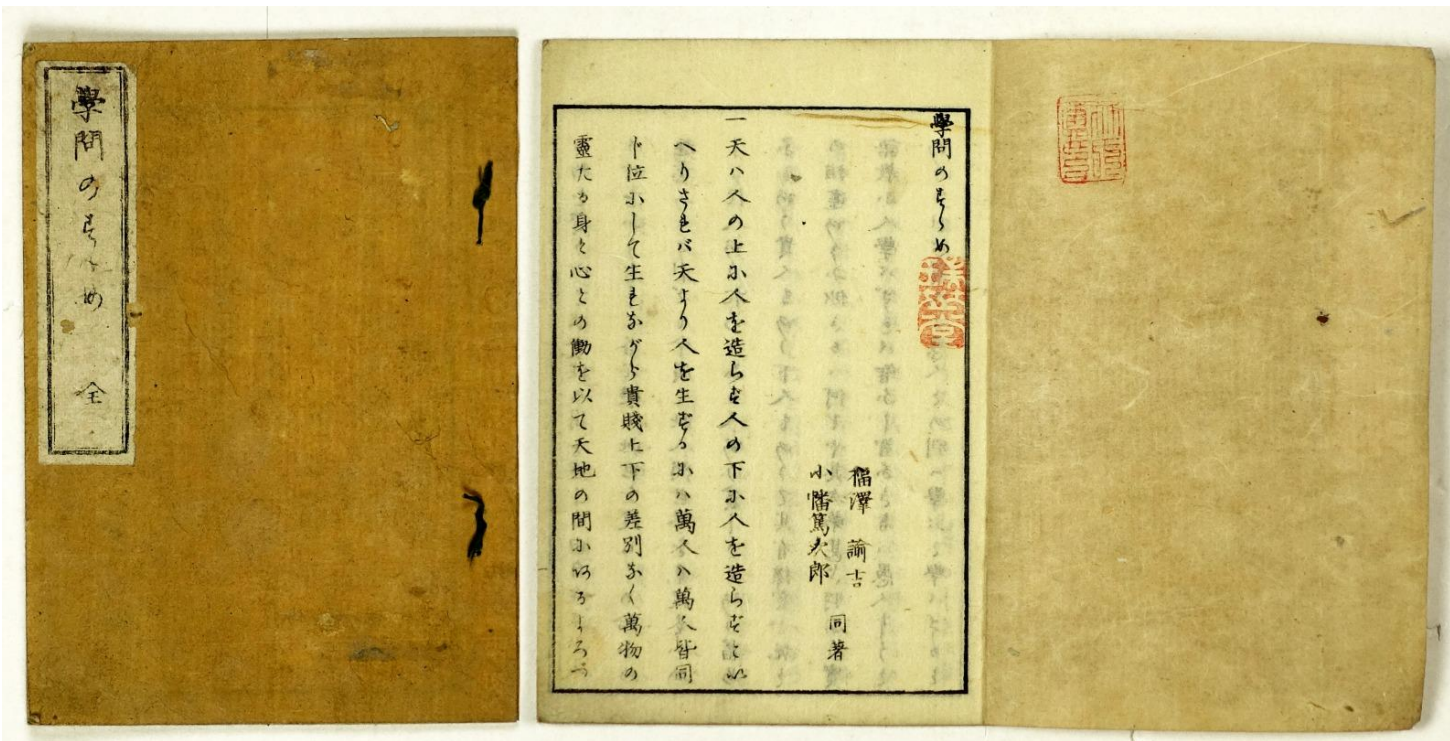 學問のすゝめ 全
學問のすゝめ
福澤諭吉
小幡篤次郎
同著
一天ハ人の上に人を造らず人の下に人を造らずと以
へりされバ天より人を生ずるにハ萬人ハ萬人皆同
じ位にして生れながら貴賤上下の差別なく萬物の
靈たる身と心との働を以て天地の間にあるよろづ